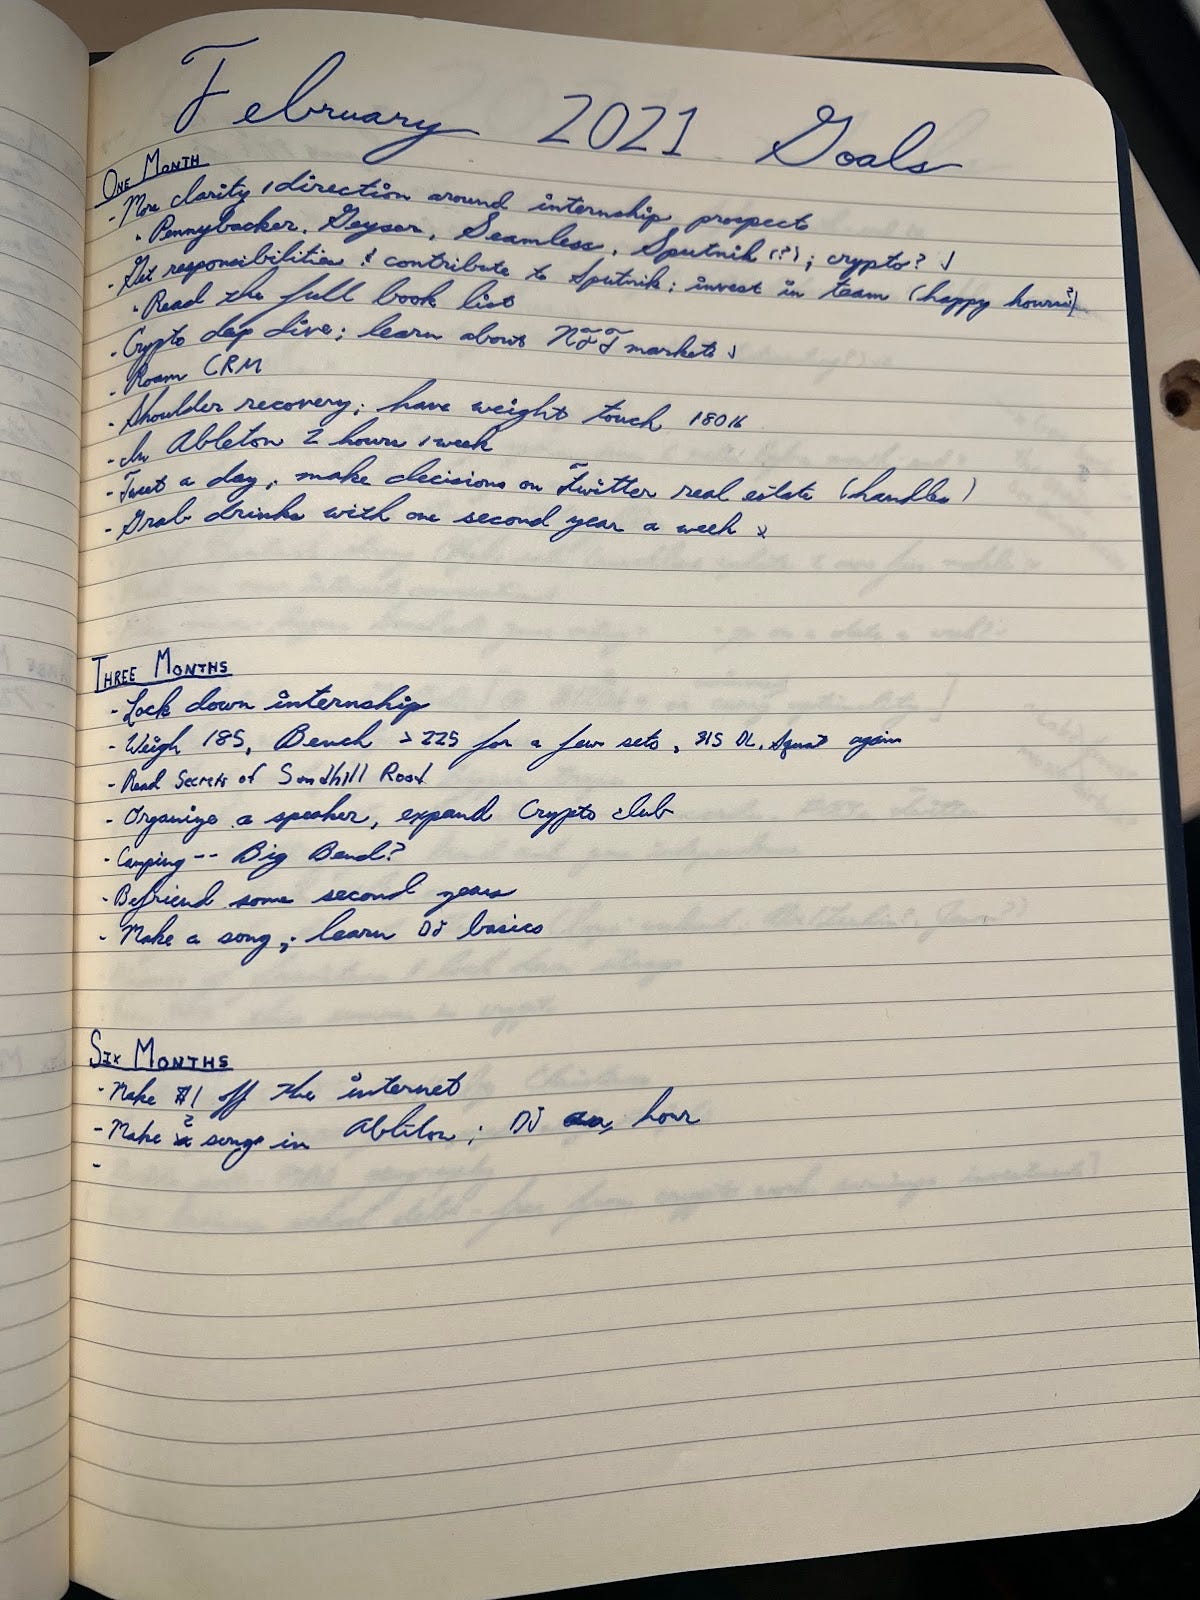 February 2021 Goals
One Month
- More clarity / direction around internship prospects
- Pennybacker, Geyser, Seamless, Sputnik (?); crypto? ✓
- Get responsibilities & contribute to Sputnik; invest in team (happy hours?)
- Read the full book list
- Crypto deep dive; learn about NFT markets ✓
- Roam CRM
- Shoulder recovery; have weight touch 180 lb
- In Ableton 2 hours / week
- Tweet a day; make decisions on Twitter real estate (handles)
- Grab drinks with one second year a week x
Three Months
- Lock down internship
- Weigh 185, Bench > 225 for a few sets, 315 DL, Squat again
- Read Secrets of Sandhill Road
- Organize a speaker, expand Crypto club
- Camping -- Big Bend?
- Befriend some second years
- Make a song; learn DJ basics
Six Months
- Make $1 off the internet
- Make 2 songs in Ableton; DJ an hour
-